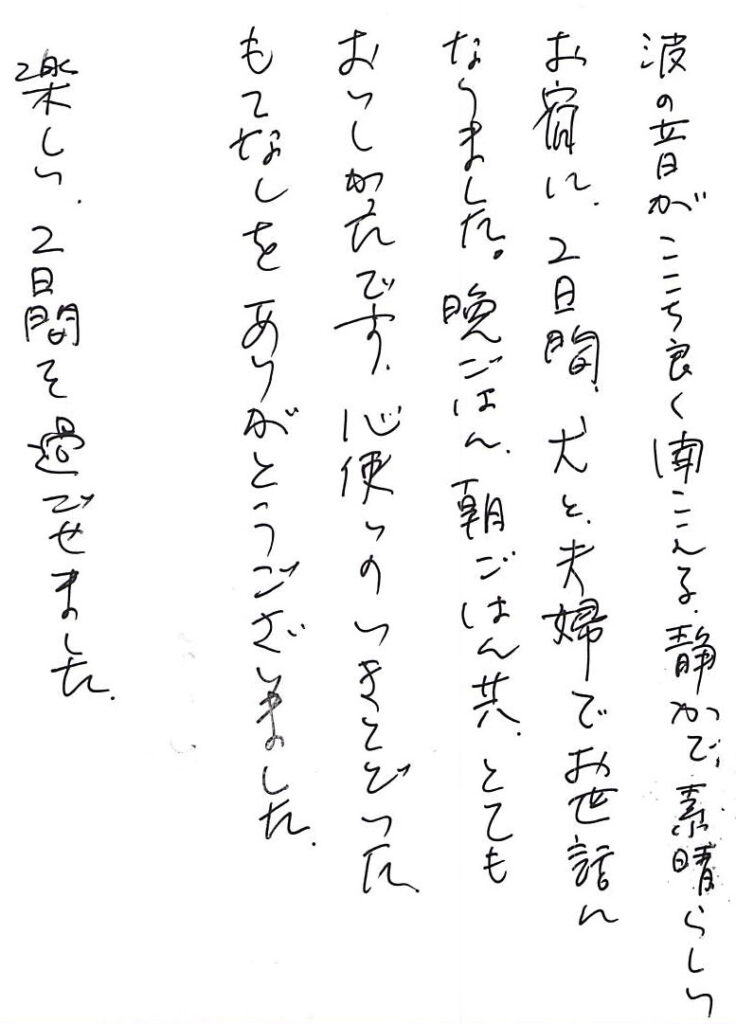 波の音がここち良く聞こえる、静かで、素晴らしい
お宿に、2日間、犬と、夫婦でお世話に
なりました。晩ごはん、朝ごはん共、とても
おいしかったです、心使いのいきとどいた
もてなしをありがとうございました、
楽しい、2日間を過ごせました、